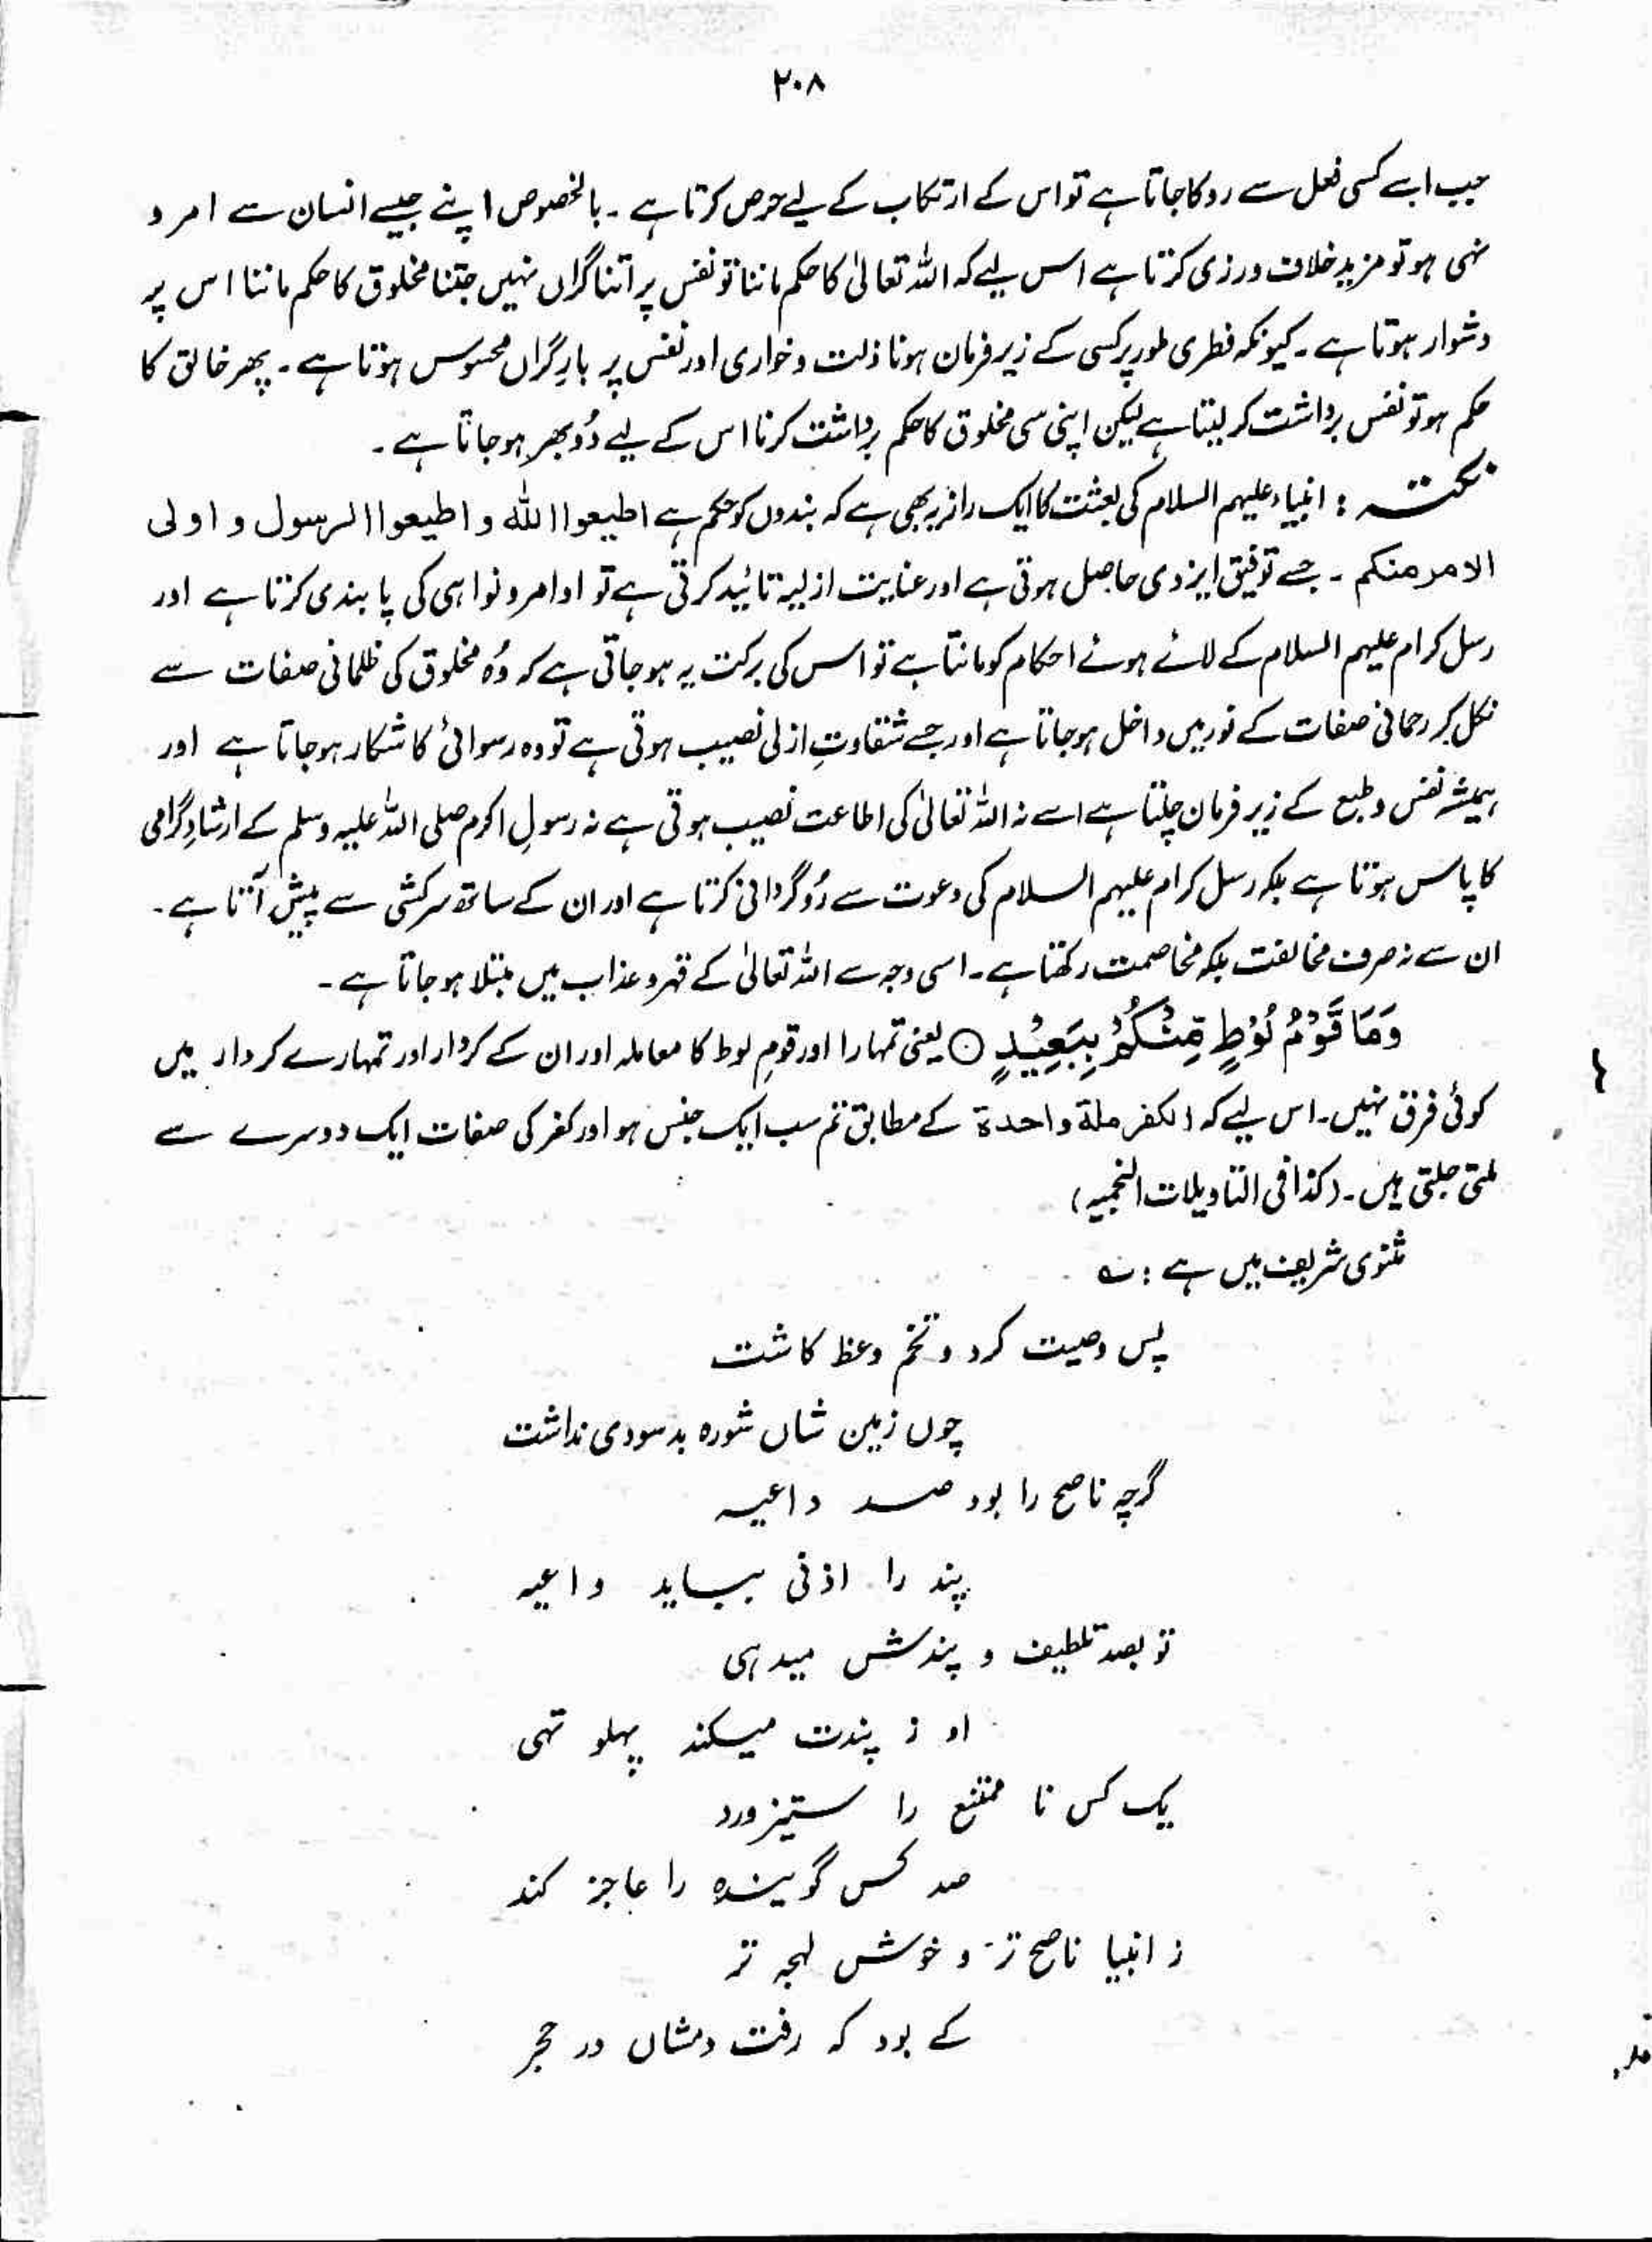 ۲۰۸
جب اسے کسی فعل سے روکا جاتا ہے تو اس کے ارتکاب کے لیے حرص کرتا ہے ۔ بالخصوص اپنے جیسے انسان سے امر و
نہی ہو تو مزید خلاف ورزی کرتا ہے اس لیے کہ اللہ تعالیٰ کا حکم ماننا تو نفس پر اتنا گراں نہیں جتنا مخلوق کا حکم ماننا اس پر
دشوار ہوتا ہے ۔ کیونکہ فطری طور پر کسی کے زیرِ فرمان ہونا ذلت و خواری اور نفس پر بارِ گراں محسوس ہوتا ہے ۔ پھر خالق کا
حکم ہو تو نفس برداشت کر لیتا ہے لیکن اپنی سی مخلوق کا حکم برداشت کرنا اس کے لیے دُوبھر ہو جاتا ہے ۔
نکتہ : انبیاء علیہم السلام کی بعثت کا ایک راز یہ بھی ہے کہ بندوں کو حکم ہے اطیعوا اللہ و اطیعوا الرسول و اولی
الامر منکم ۔ جسے توفیق ایزدی حاصل ہوتی ہے اور عنایت ازلیہ تائید کرتی ہے تو اوامر و نواہی کی پابندی کرتا ہے اور
رسل کرام علیہم السلام کے لائے ہوئے احکام کو مانتا ہے تو اس کی برکت یہ ہو جاتی ہے کہ وُہ مخلوق کی ظلمانی صفات سے
نکل کر رحمانی صفات کے نور میں داخل ہو جاتا ہے اور جسے شقاوتِ ازلی نصیب ہوتی ہے تو وہ رسوائی کا شکار ہو جاتا ہے اور
ہمیشہ نفس و طبع کے زیر فرمان چلتا ہے اسے نہ اللہ تعالیٰ کی اطاعت نصیب ہوتی ہے نہ رسولِ اکرم صلی اللہ علیہ وسلم کے ارشادِ گرامی
کا پاس ہوتا ہے بلکہ رسل کرام علیہم السلام کی دعوت سے رُوگردانی کرتا ہے اور ان کے ساتھ سرکشی سے پیش آتا ہے ۔
ان سے نہ صرف مخالفت بلکہ مخاصمت رکھتا ہے ۔ اسی وجہ سے اللہ تعالیٰ کے قہر و عذاب میں مبتلا ہو جاتا ہے ۔
وَمَا قَوْمُ لُوْطٍ مِّنْكُمْ بِبَعِيْدٍ ○ یعنی تمہارا اور قومِ لوط کا معاملہ اور ان کے کردار اور تمہارے کردار میں
کوئی فرق نہیں ۔ اس لیے کہ الکفر ملة واحدة کے مطابق تم سب ایک جنس ہو اور کفر کی صفات ایک دوسرے سے
ملتی جلتی ہیں ۔ (کذا فی التاویلات النجمیہ)
مثنوی شریف میں ہے : ؎
پس وصیت کرد و تخم وعظ کاشت
چوں زمین شاں شورہ بد سودی نداشت
گرچہ ناصح را بود صد داعیہ
پند را اذنی بباید واعیہ
تو بصد تلطیف و پندش میدہی
او ز پندت میکند پہلو تہی
یک کس نا ممتنع را ستیز ورد
صد کس گویندہ را عاجز کند
ز انبیا ناصح تر و خوش لہجہ تر
کے بود کہ رفت دمشاں در حجر